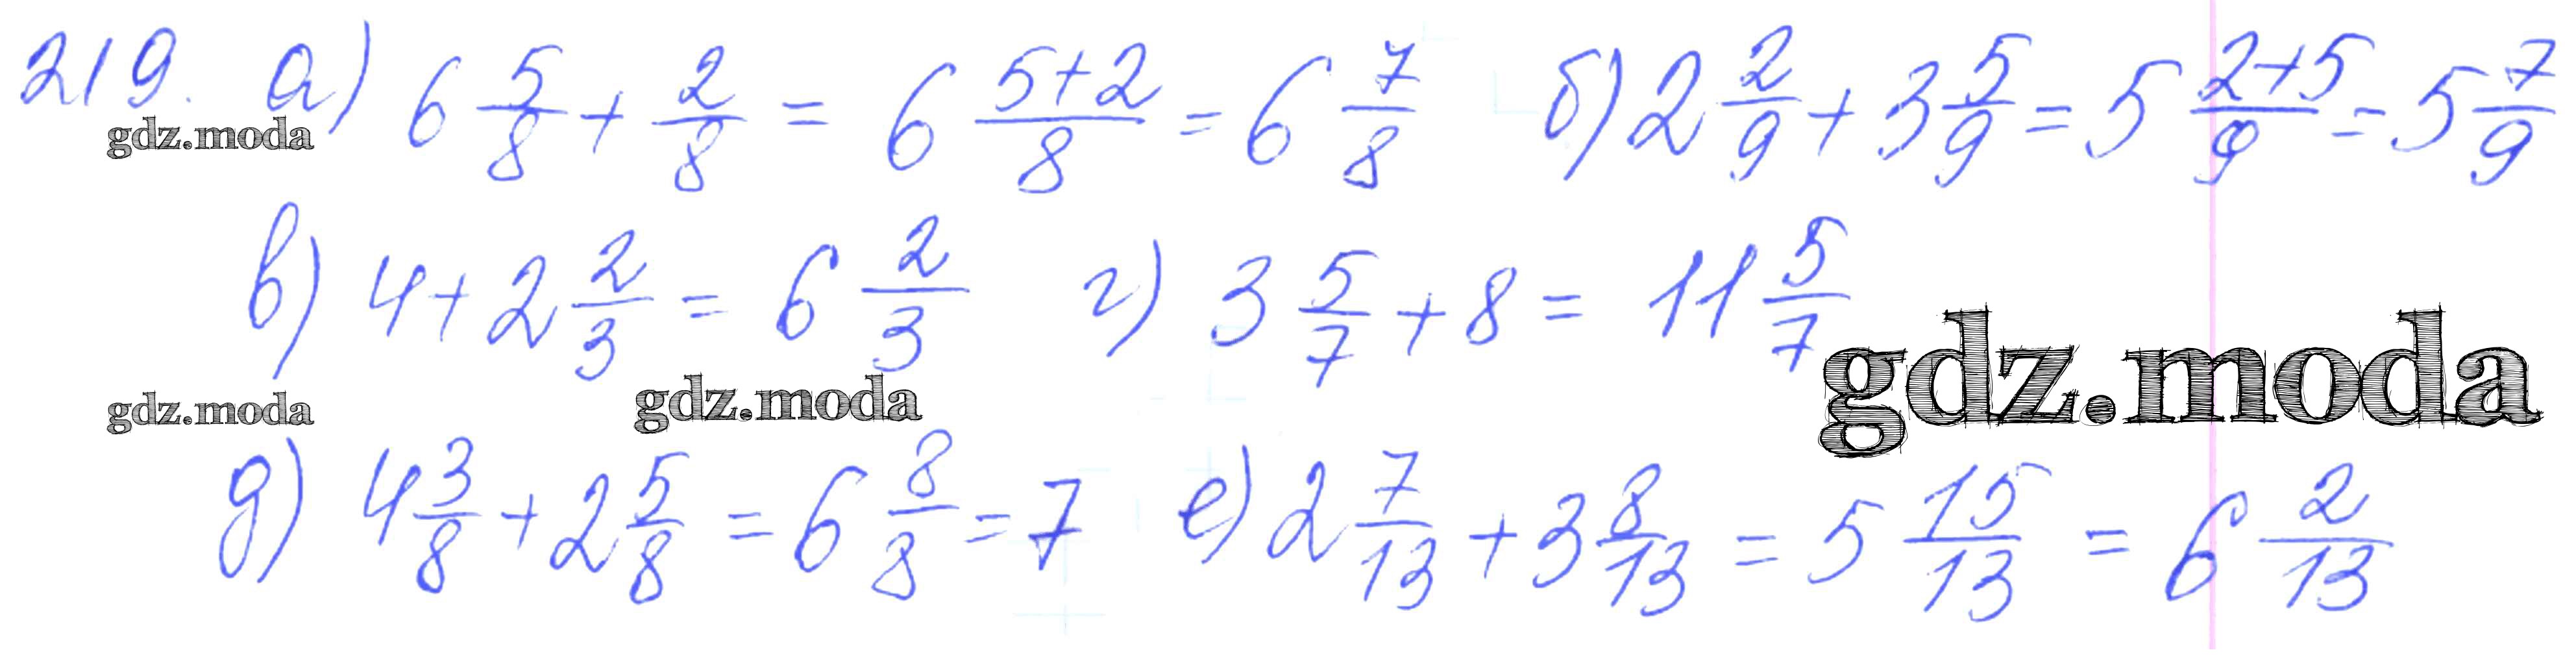 219. а) 6 5/8 + 2/8 = 6 (5+2)/8 = 6 7/8 б) 2 2/9 + 3 5/9 = 5 (2+5)/9 = 5 7/9
gdz.moda
в) 4 + 2 2/3 = 6 2/3 г) 3 5/7 + 8 = 11 5/7
gdz.moda gdz.moda gdz.moda
д) 4 3/8 + 2 5/8 = 6 8/8 = 7 е) 2 7/13 + 3 8/13 = 5 15/13 = 6 2/13